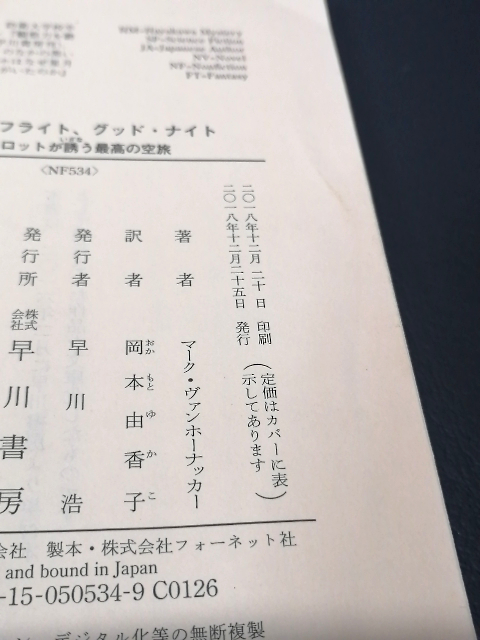 HM=Hayakawa Mystery
SF=Science Fiction
JA=Japanese Author
NV=Novel
NF=Nonfiction
FT=Fantasy
フライト、グッド・ナイト
ロットが誘う最高の空旅
〈NF534〉
二〇一八年十二月二十日 印刷
二〇一八年十二月二十五日 発行
(定価はカバーに表示してあります)
著者 マーク・ヴァンホーナッカー
訳者 岡本由香子
発行者 早川 浩
発行所 株式会社 早川書房
会社 製本・株式会社フォーネット社
and bound in Japan
-15-050534-9 C0126
デジタル化等の無断複製